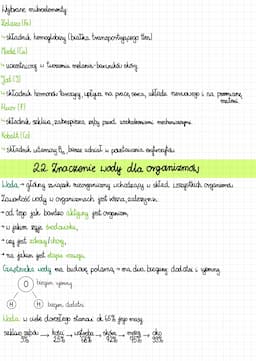 Wybrane mikroelementy:
Żelazo (Fe)
→ składnik hemoglobiny (białka transportującego tlen)
Miedź (Cu)
→ uczestniczy w tworzeniu melaniny - barwnika skóry
Jod (I)
→ składnik hormonów tarczycy, wpływa na pracę serca, układu nerwowego i na przemianę
materii
Fluor (F)
→ składnik szkliwa, zabezpiecza zęby przed uszkodzeniami mechanicznymi
Kobalt (Co)
→ składnik witaminy B₁₂, bierze udział w powstawaniu erytrocytów
2.2. Znaczenie wody dla organizmów
Woda → główny związek nieorganiczny wchodzący w skład wszystkich organizmów
Zawartość wody w organizmach jest różna, zależy m.in.
→ od tego jak bardzo aktywny jest organizm,
→ w jakim żyje środowisku,
→ czy jest zdrowy/chory,
→ na jakim jest etapie rozwoju.
Cząsteczka wody ma budowę polarną → ma dwa bieguny dodatni i ujemny
O biegun ujemny
H H biegun dodatni
Woda w ciele dorosłego stanowi ok 65% jego masy
szkliwo zębów → kości → wątroba → skóra → mózg → oko
3% 25% 68% 72% 75% 99%